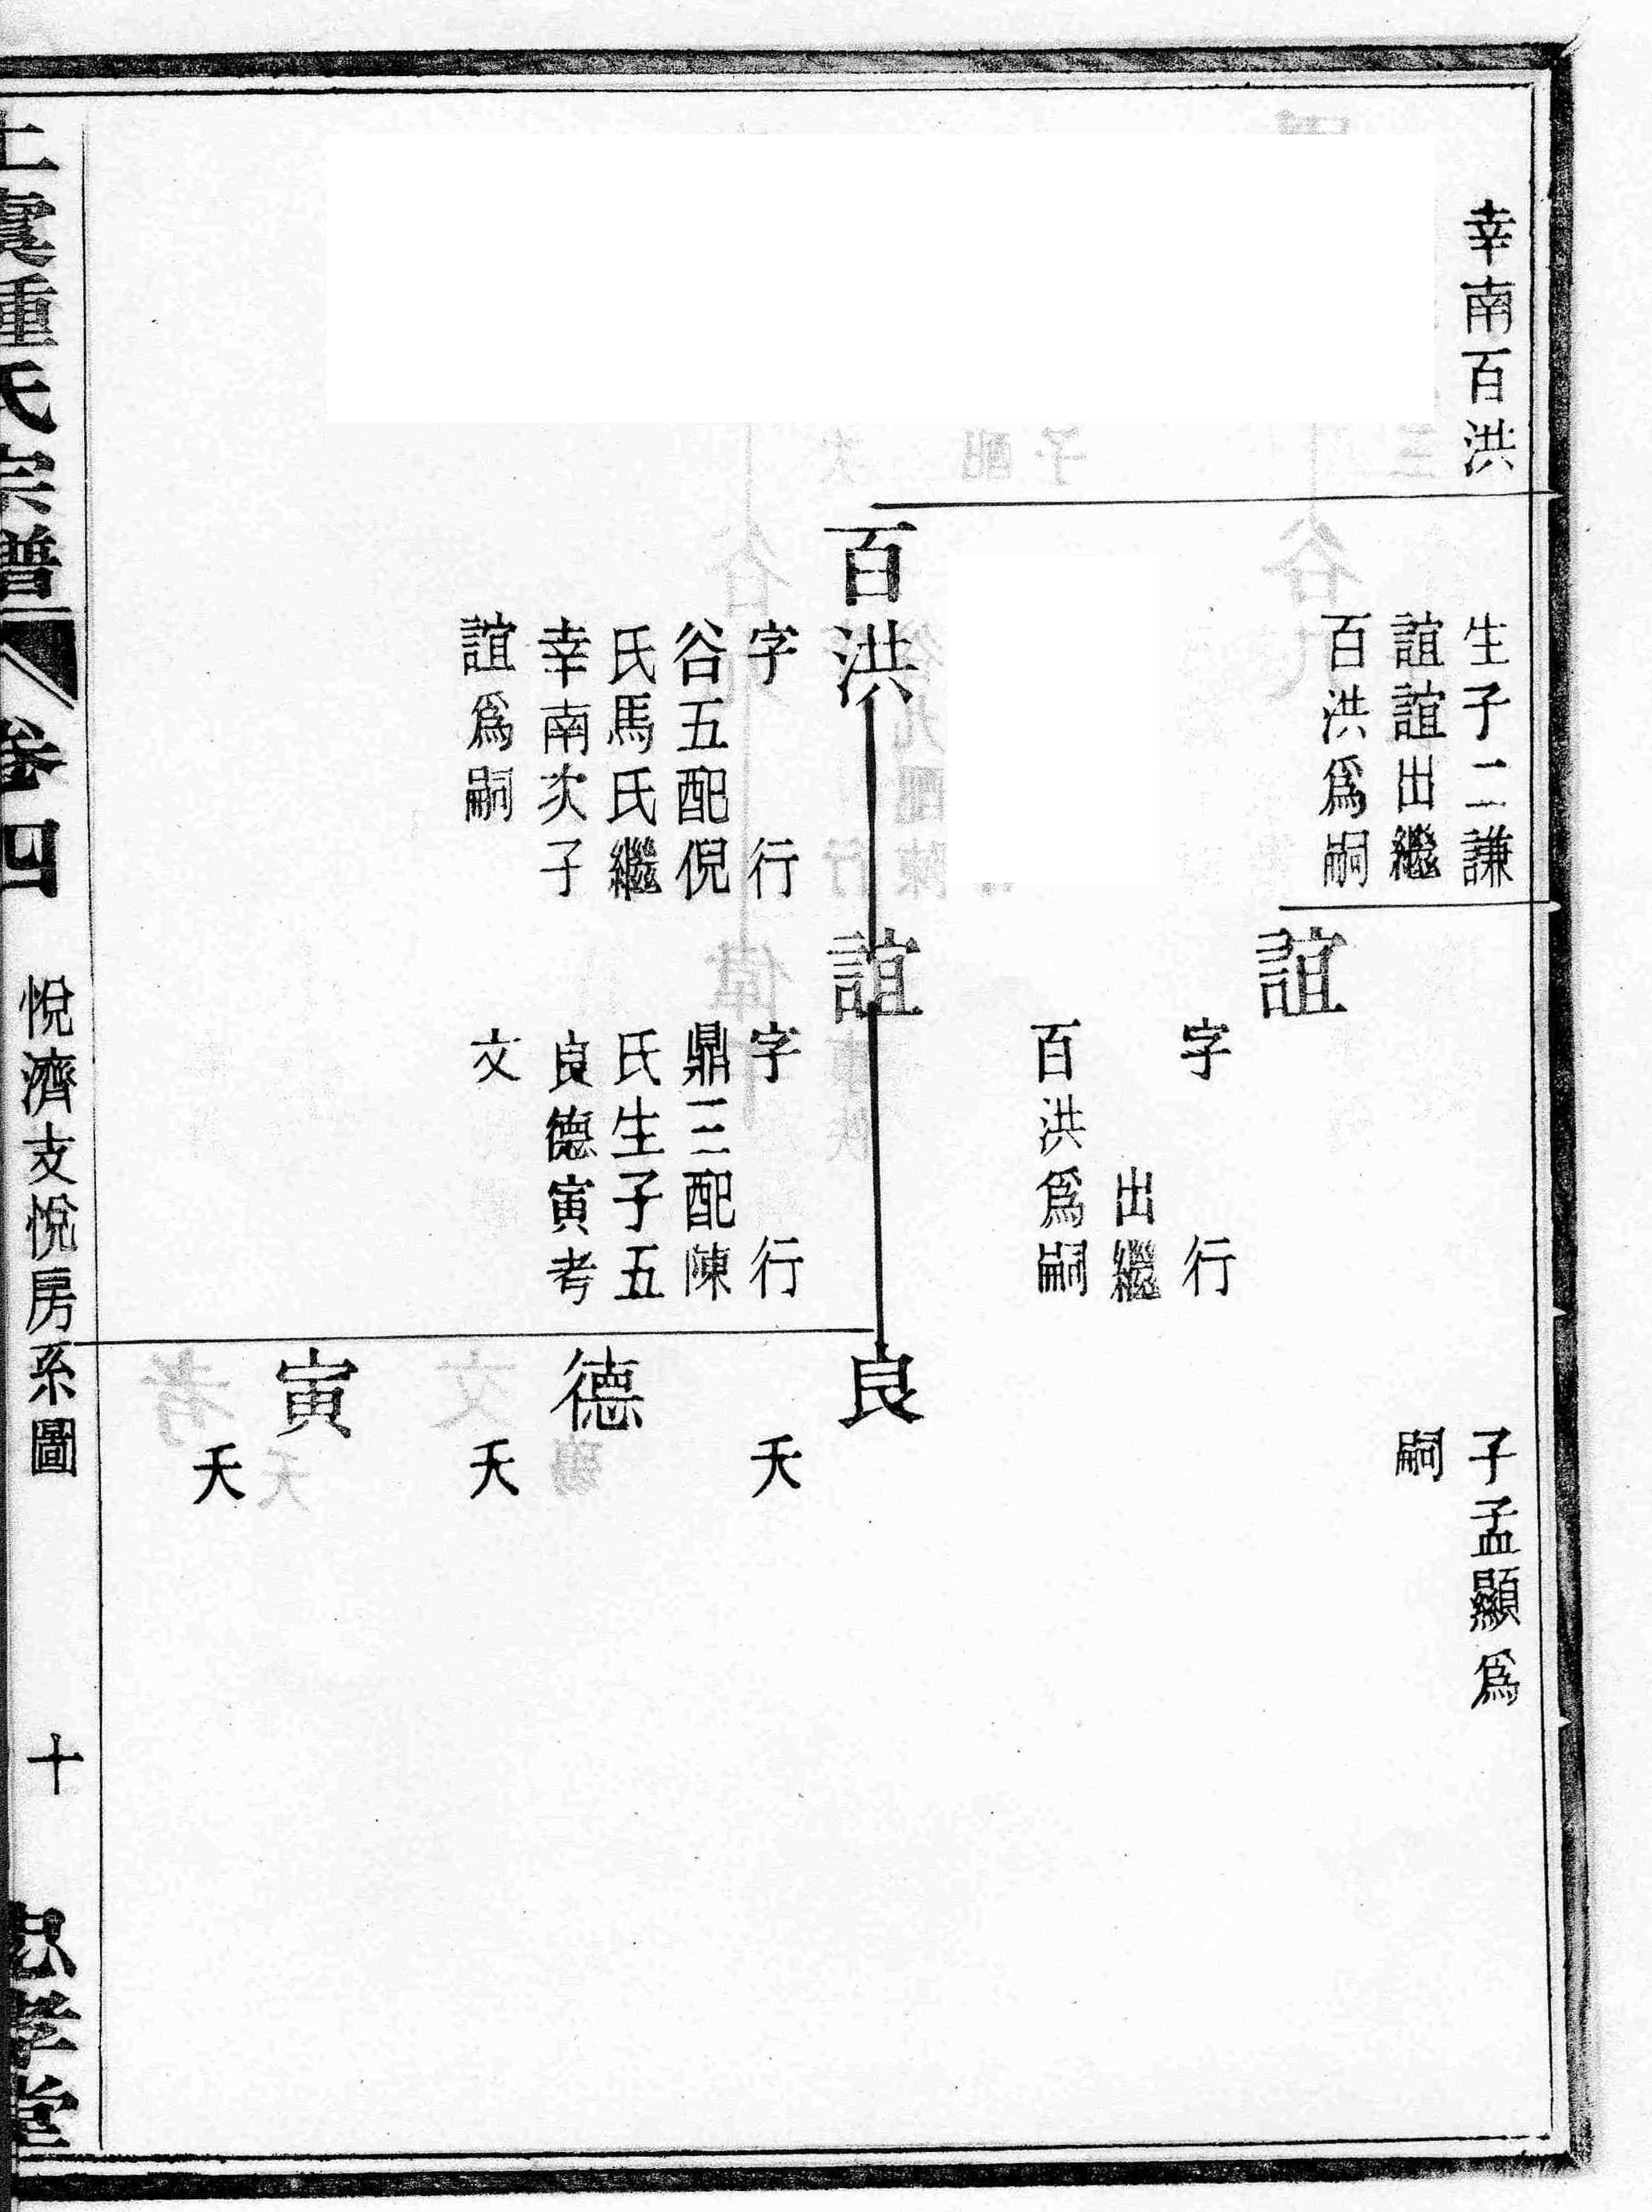 幸南百洪
生子二謙
誼誼出繼
百洪爲嗣
子孟顯爲
嗣
誼
字 行
出繼
百洪爲嗣
百洪
字 行
谷五配倪
氏馬氏繼
幸南次子
誼爲嗣
誼
字 行
鼎三配陳
氏生子五
良德寅考
文
良
夭
德
夭
寅
夭
上虞種氏宗譜 卷四 悅濟支悅房系圖 十 忠孝堂